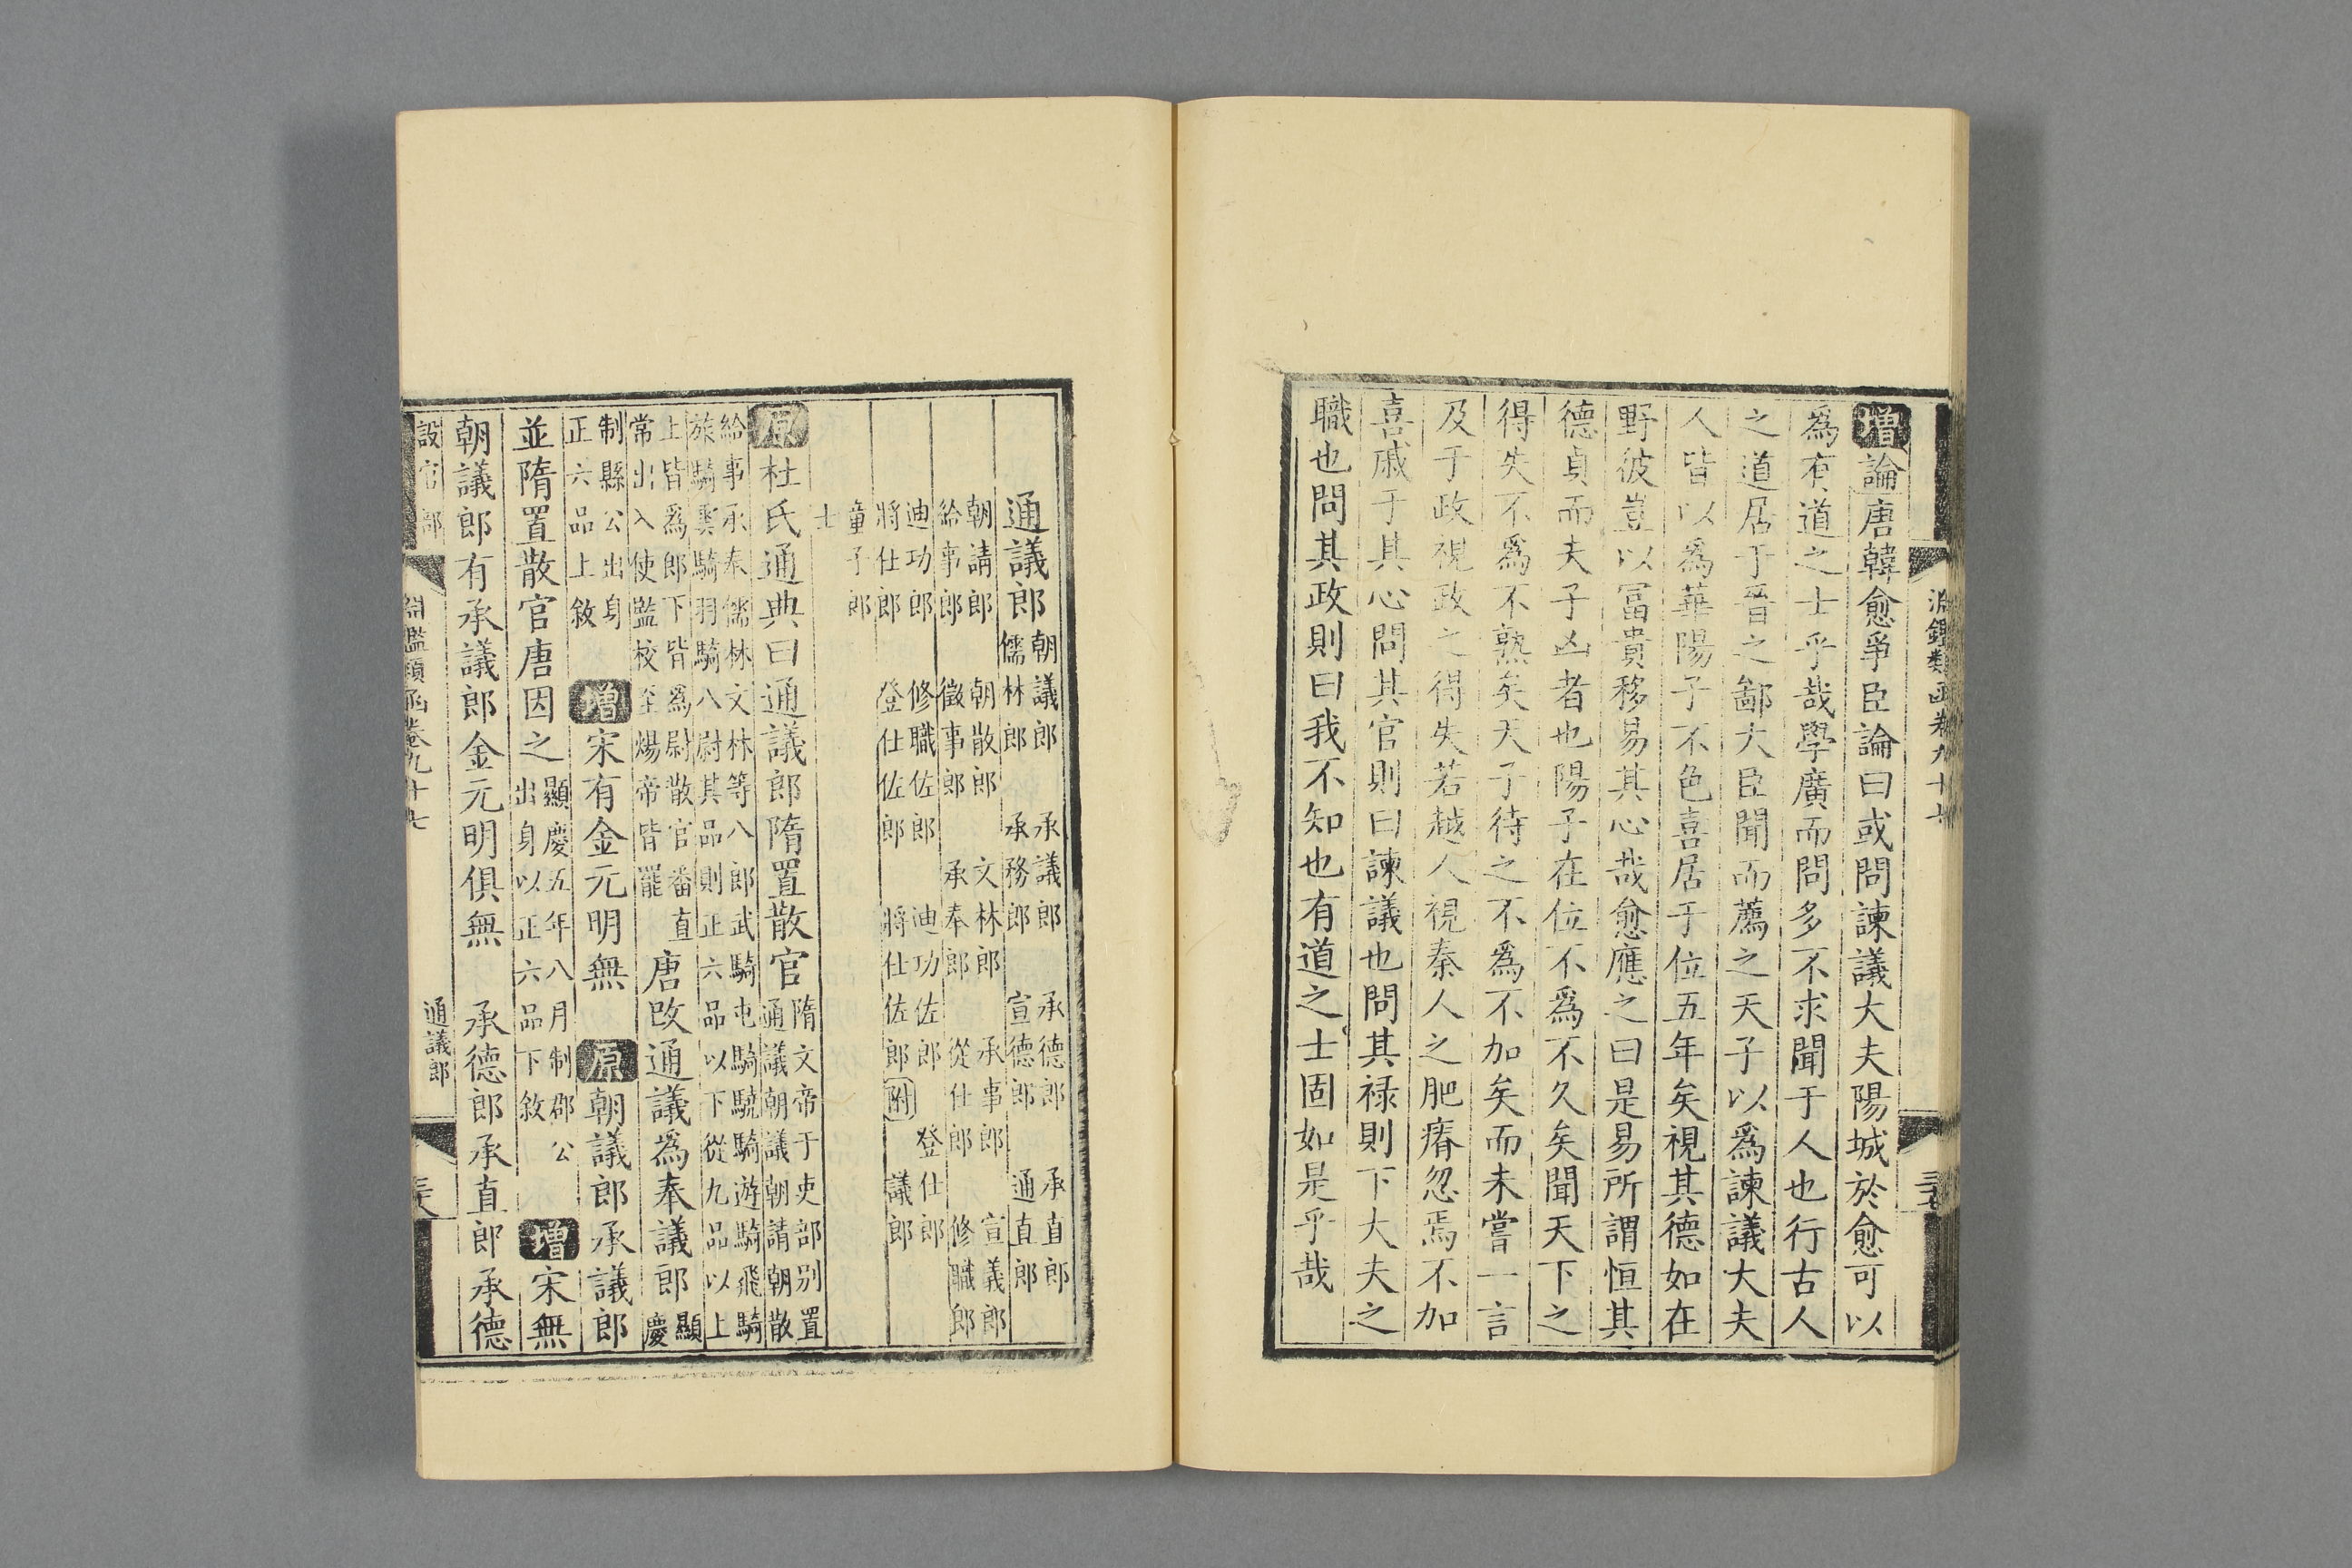 增論唐韓愈爭臣論曰或問諫議大夫陽城於愈可以
爲有道之士乎哉學廣而問多不求聞于人也行古人
之道居于晉之鄙大臣聞而薦之天子以爲諫議大夫
人皆以爲華陽子不色喜居于位五年矣視其德如在
野彼豈以冨貴移易其心哉愈應之曰是易所謂恒其
德貞而夫子凶者也陽子在位不爲不久矣聞天下之
得失不爲不熟矣天子待之不爲不加矣而未嘗一言
及于政視政之得失若越人視秦人之肥瘠忽焉不加
喜戚于其心問其官則曰諫議也問其禄則下大夫之
職也問其政則曰我不知也有道之士固如是乎哉
淵鑑類函卷九十七
通議郎
朝議郎 承議郎 承德郎 承直郎
儒林郎 承務郎 宣德郎 通直郎
朝請郎 朝散郎 文林郎 承事郎 宣義郎
給事郎 徵事郎 承奉郎 從仕郎 修職郎
迪功郎 修職佐郎 迪功佐郎 登仕郎
將仕郎 登仕佐郎 將仕佐郎 附 議郎
童子郎
士
原杜氏通典曰通議郎隋置散官
隋文帝于吏部别置
通議朝議朝請朝散
給事承奉儒林文林等八郎武騎屯騎驍騎遊騎飛騎
旅騎雲騎羽騎八尉其品則正六品以下從九品以上
上皆爲郎下皆爲尉散官番直
常出入使監校至煬帝皆罷
唐改通議爲奉議郎
顯
慶
制縣公出身
正六品上敘
增宋有金元明無 原朝議郎承議郎
並隋置散官唐因之
顯慶五年八月制郡公
出身以正六品下敘
增宋無
朝議郎有承議郎金元明俱無 承德郎承直郎 承德
設官部
淵鑑類函卷九十七
通議郎